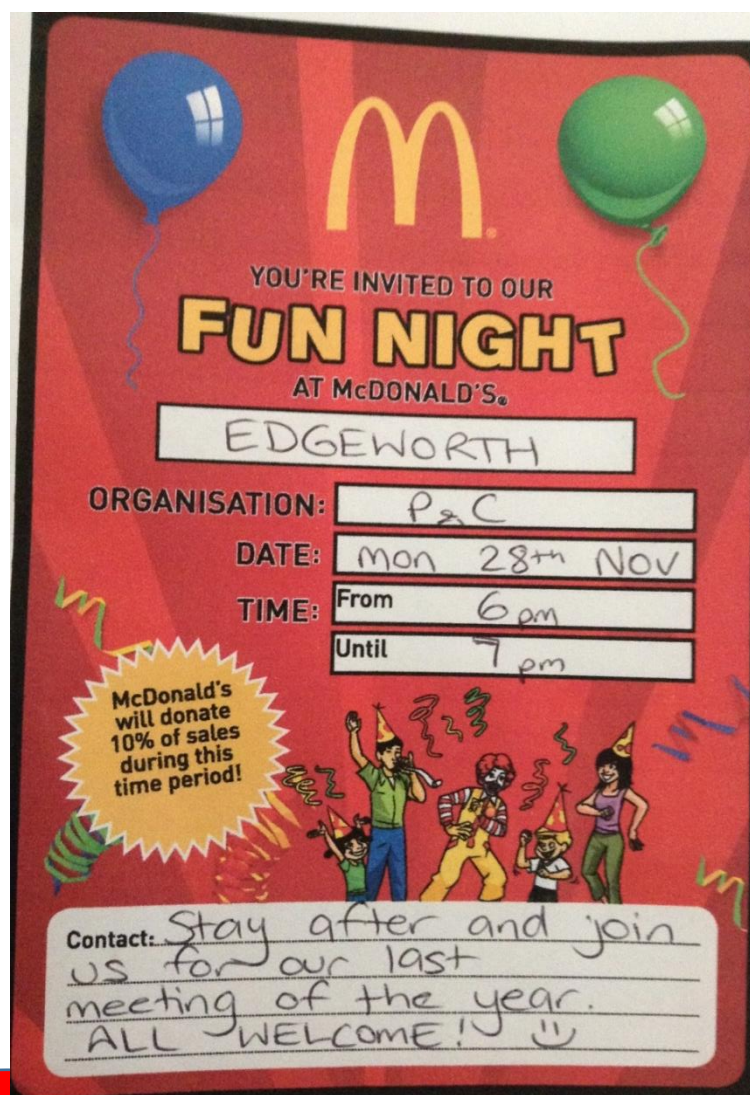 M
YOU'RE INVITED TO OUR
FUN NIGHT
AT McDONALD'S®
EDGEWORTH
ORGANISATION: P & C
DATE: Mon 28th NOV
TIME: From 6 pm
Until 7 pm
McDonald's
will donate
10% of sales
during this
time period!
Contact: Stay after and join
us for our last
meeting of the year.
ALL WELCOME! :)